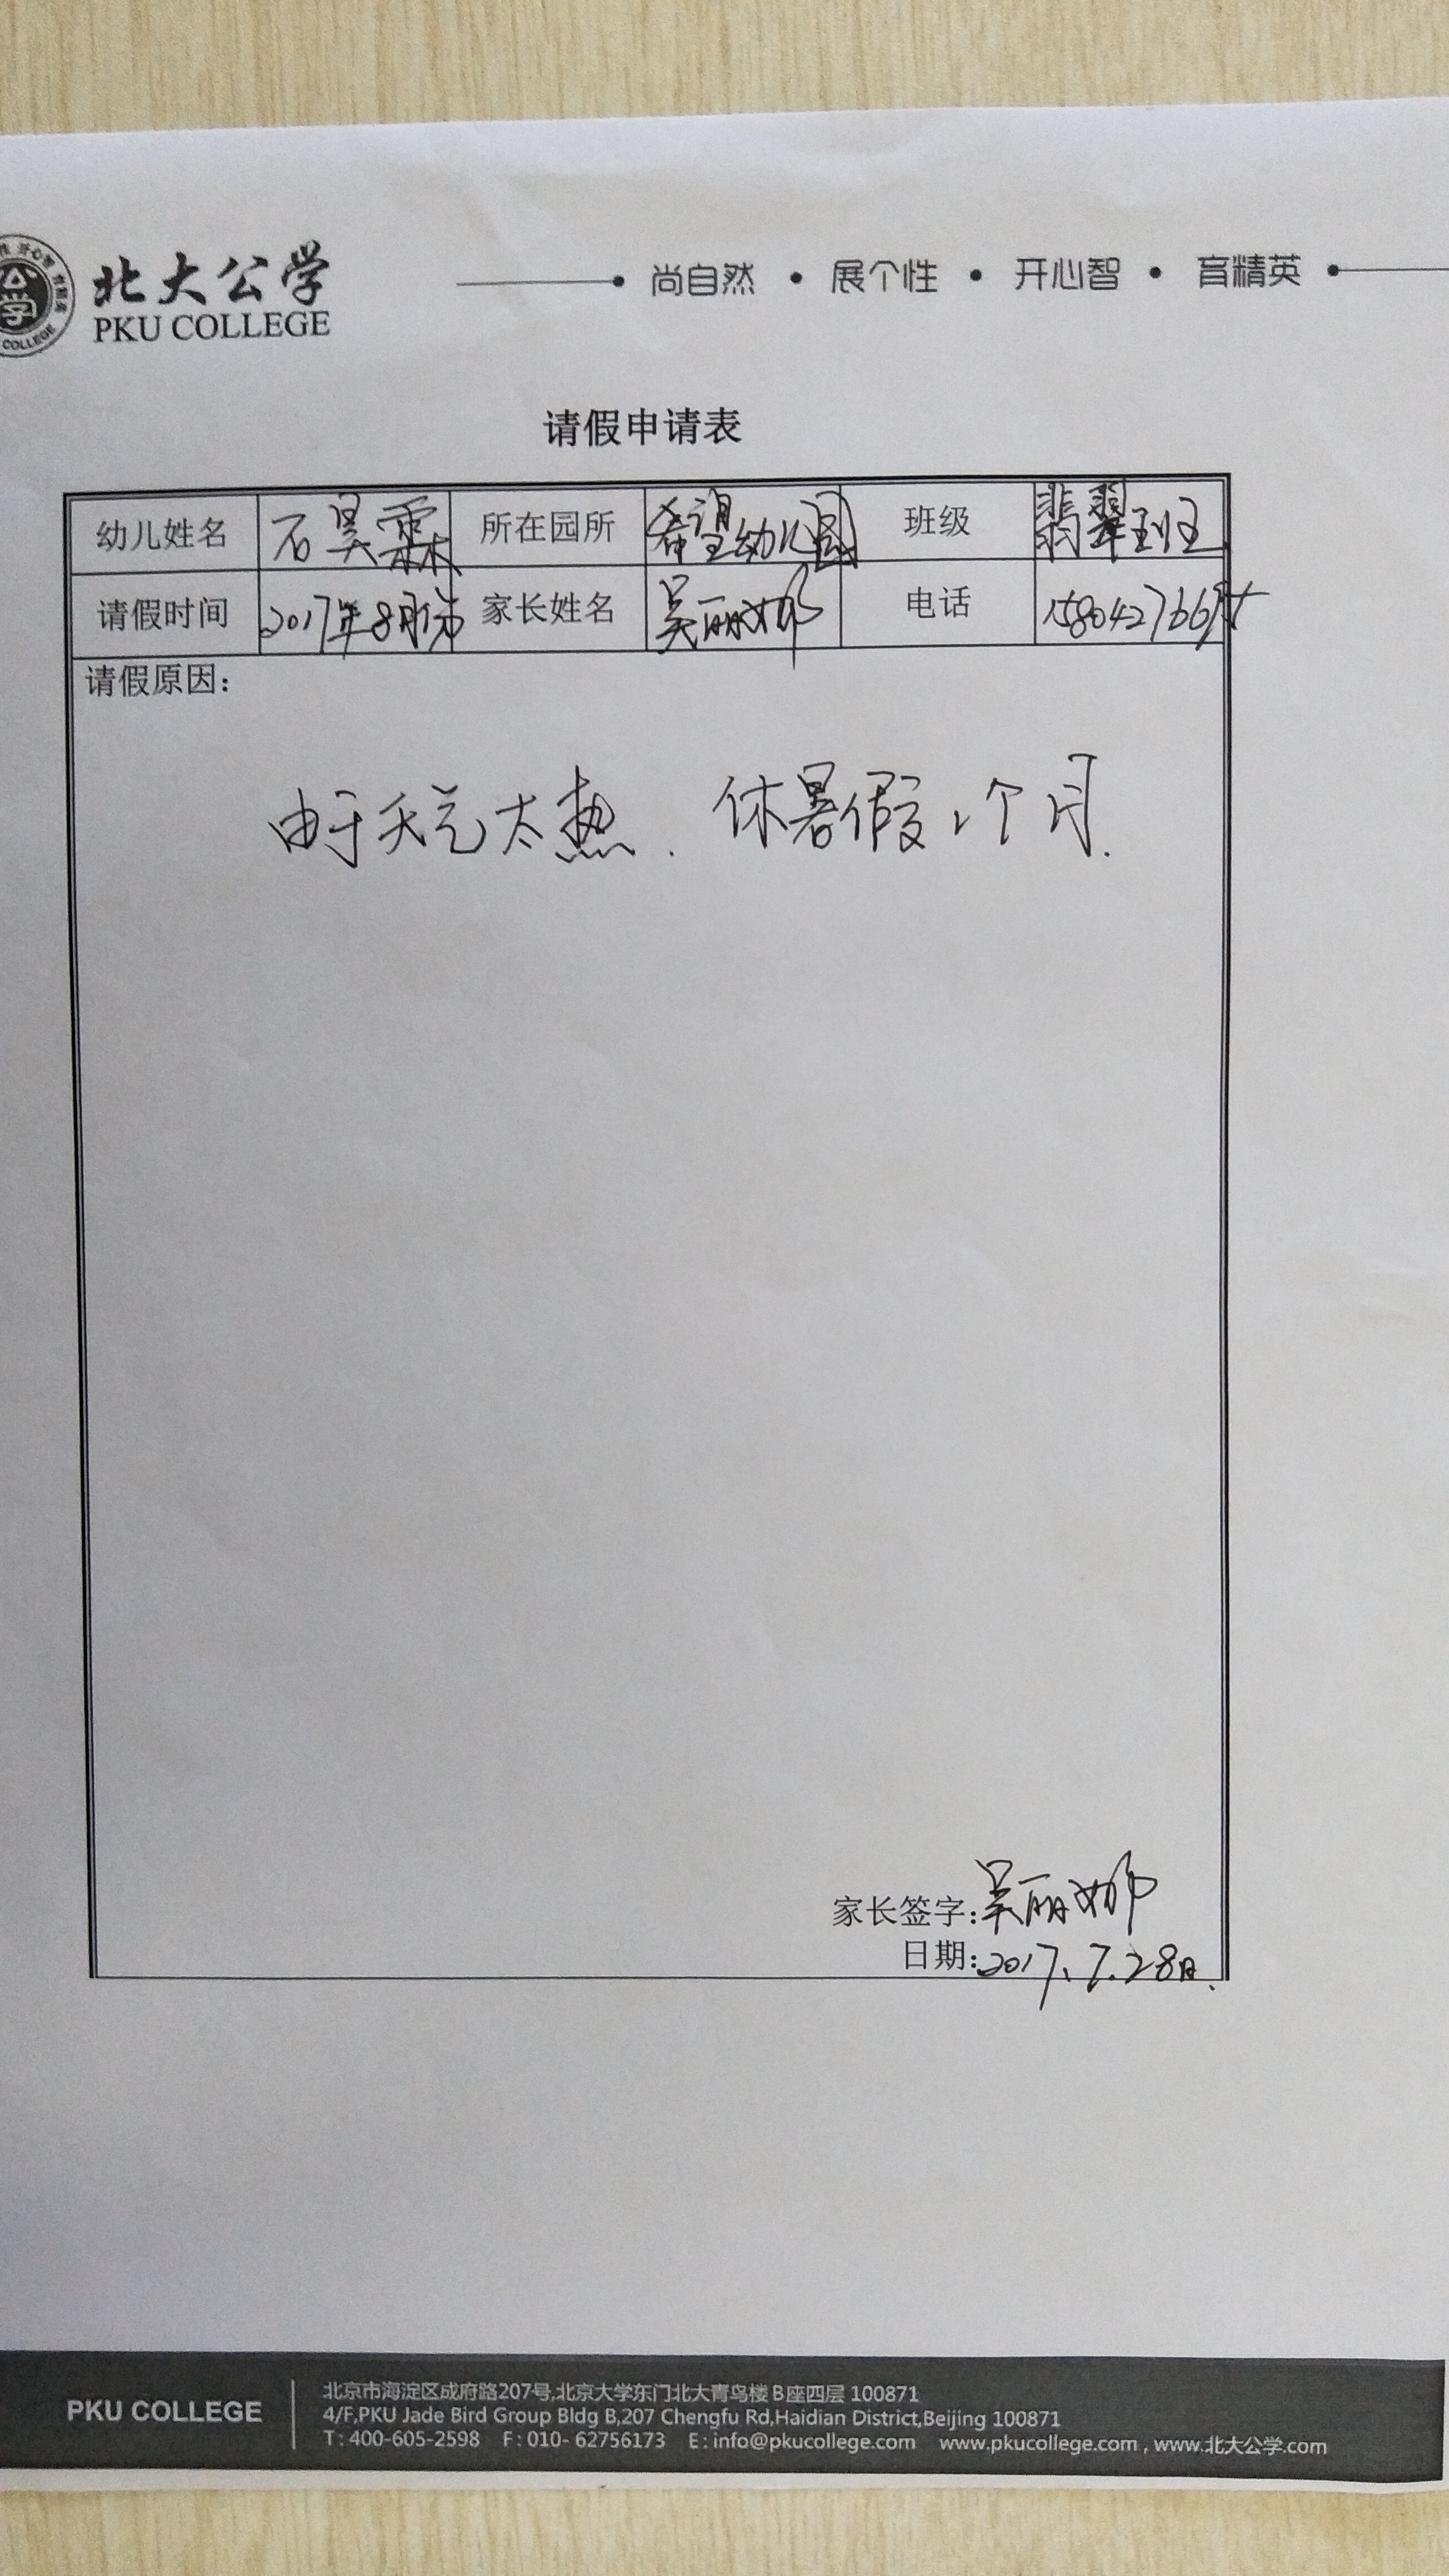 北大公学
PKU COLLEGE
尚自然 • 展个性 • 开心智 • 育精英
请假申请表
幼儿姓名 石昊霖 所在园所 希望幼儿园 班级 翡翠班
请假时间 2017年8月份 家长姓名 吴丽娜 电话
请假原因:
由于天气太热. 休暑假1个月.
家长签字:吴丽娜
日期:2017.7.28日.
PKU COLLEGE
北京市海淀区成府路207号,北京大学东门北大青鸟楼B座四层 100871
4/F,PKU Jade Bird Group Bldg B,207 Chengfu Rd,Haidian District,Beijing 100871
T:400-605-2598 F:010-62756173 E:info@pkucollege.com www.pkucollege.com , www.北大公学.com